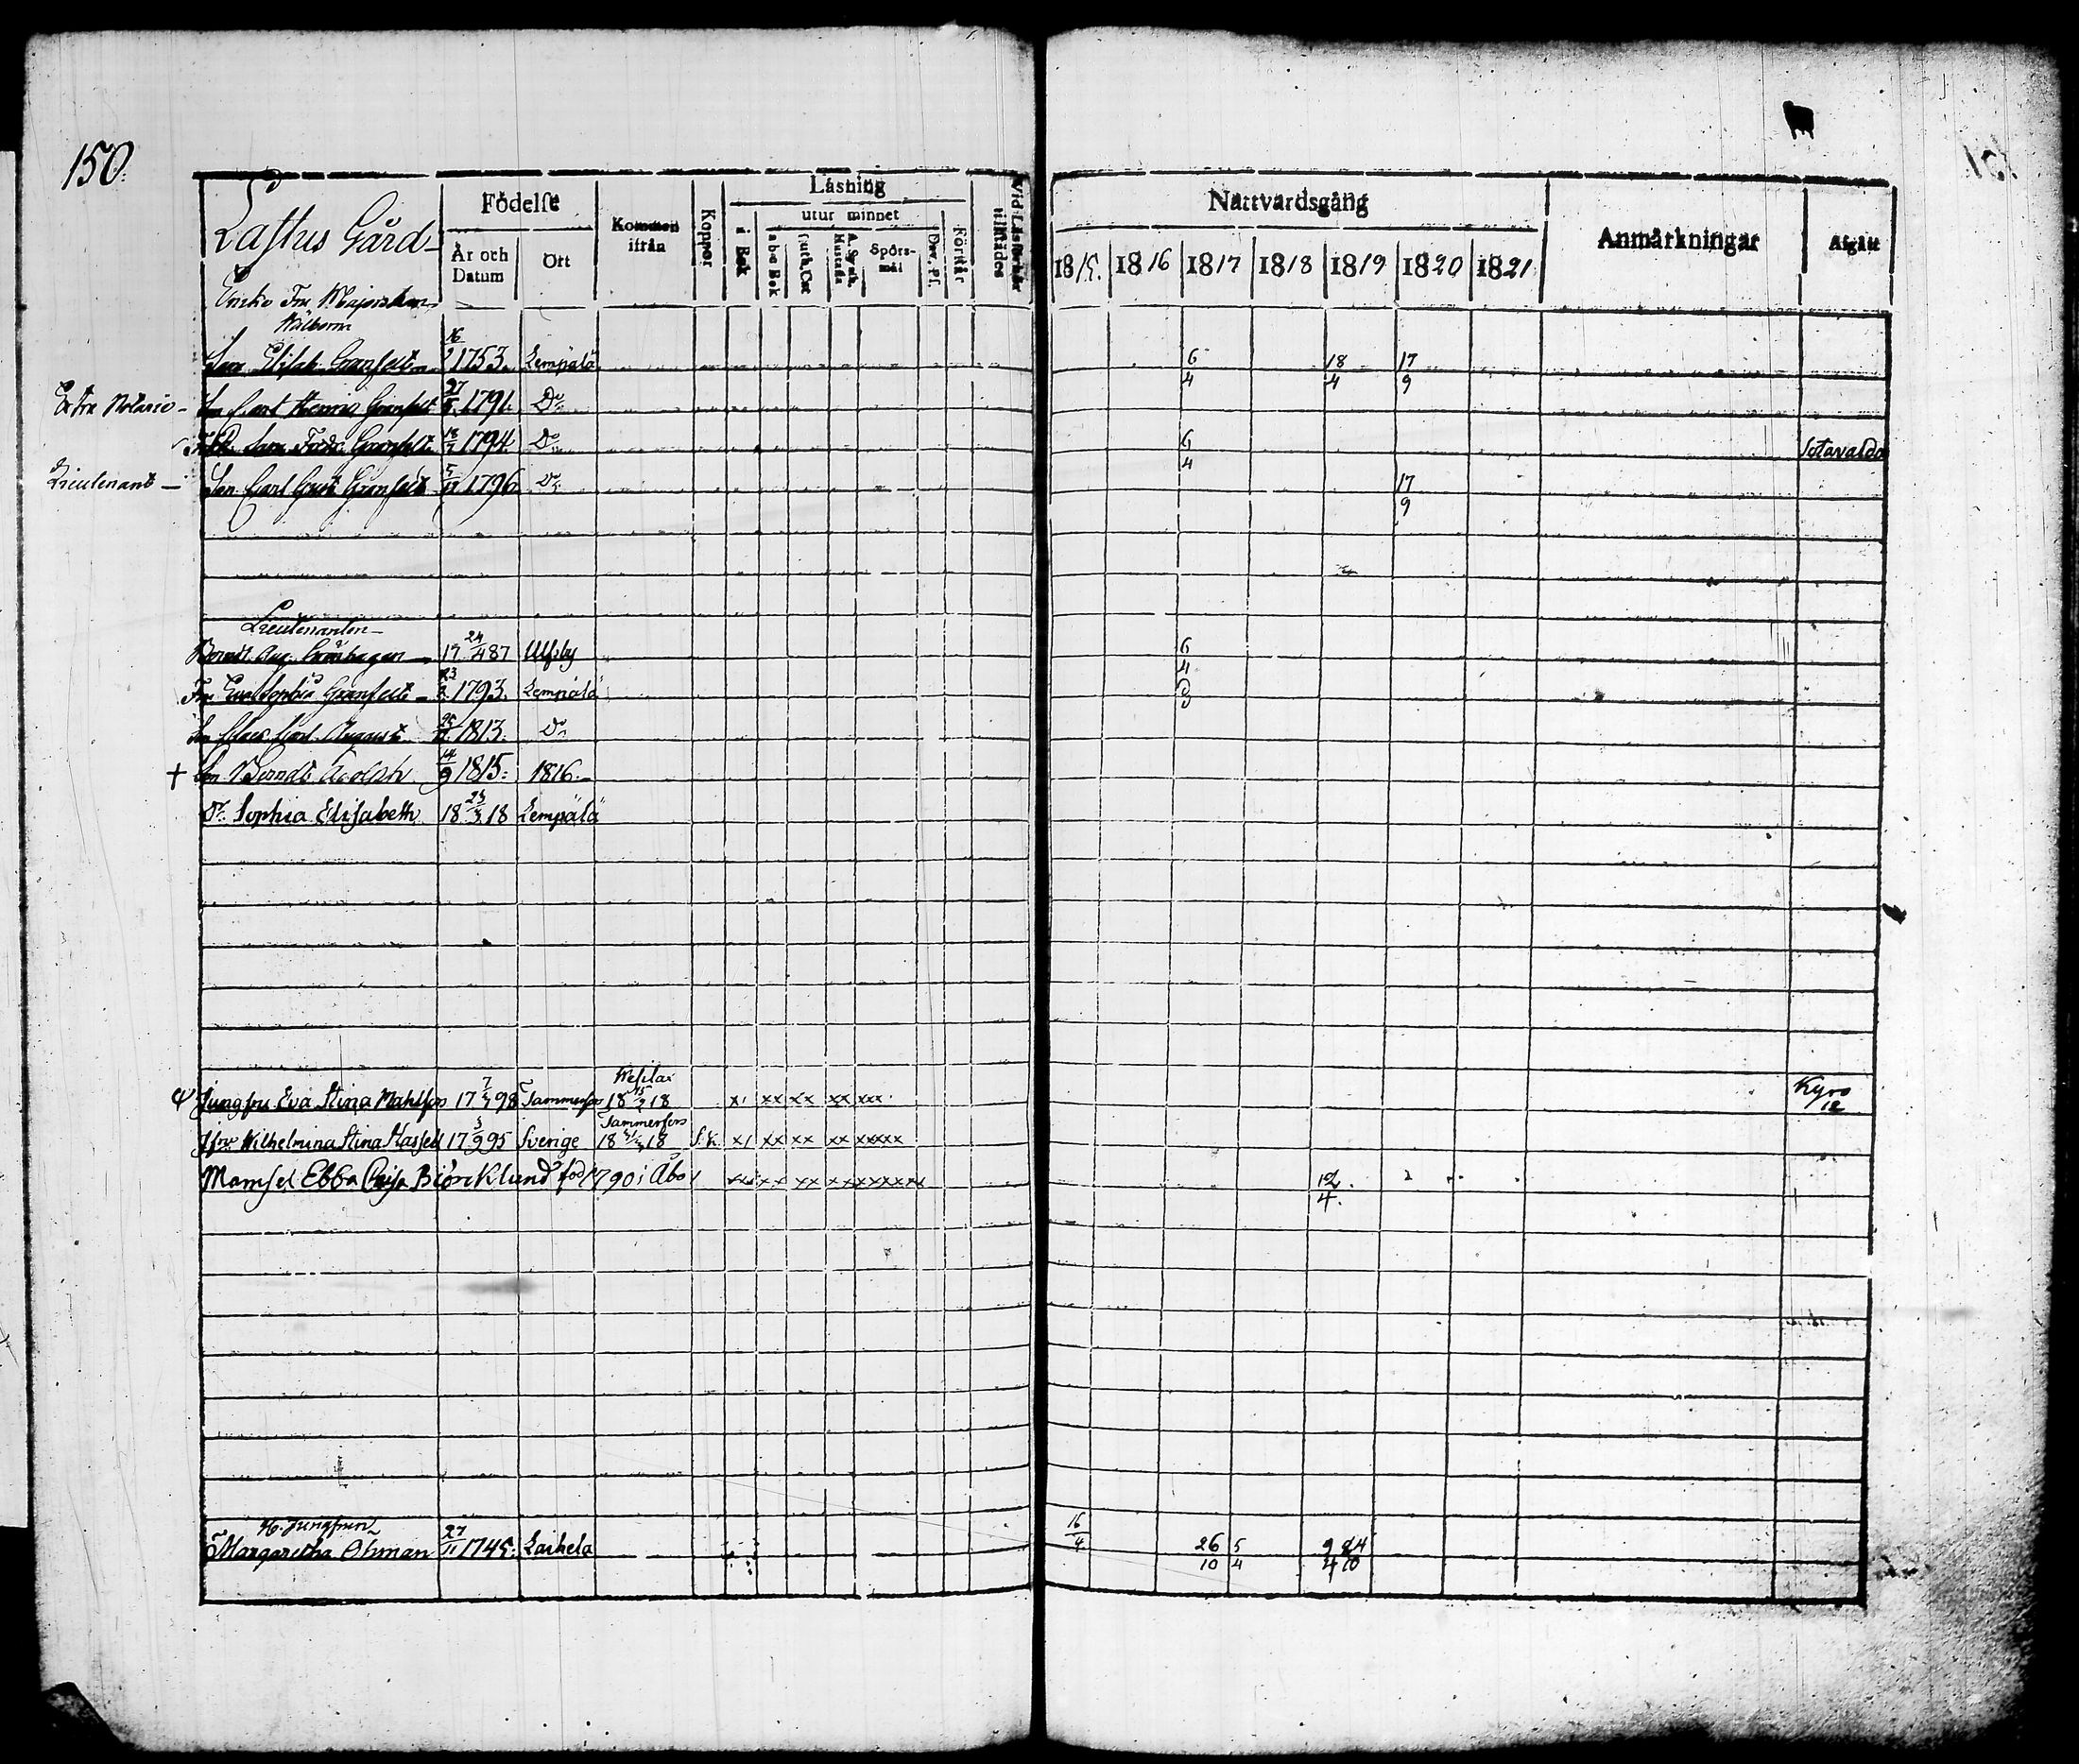 150.
Lastus Gård
Födelse
Kommen ifrån
Koppor
Läsning
utur minnet
Vid Läsförhör tillstädes
Nattvardsgång
Anmärkningar
Afgått
År och Datum
Ort
i Bok
abc Bok
Luth. Cat
A. Symb. Hustafla
Spörs-mål
Dav. Ps.
Förstår
1815. 1816 1817 1818 1819 1820 1821
Enke Fru Majorskan
Wälborne
16/9 1753. Lempälä 6/4 18/4 17/9
Extra Notarie - Son Carl Henric Granfelt 27/8 1791. Do
Sara Granfelt 18/7 1794 Do 6/4 Sotavalda
Lieutenant - Son Carl Gust Granfelt 5/11 1796 Do 17/9
Lieutenanten
Berndt Aug. Crönhagen 17 24/4 87 Ulfsby 6/4
Fru Eva Sophia Granfelt 1793. Lempälä D
Son Claes Carl August 1813. Do
† Son Berndt Adolph 14/9 1815. 1816.
Dr. Sophia Elisabeth 18 18 Lempälä
Jungfru Eva Stina Mahlfors 17 7/7 98 Tammerfors Wesilax 18 15/2 18 x1 xx xx xx xxx Kyro 12
Jfru Wilhelmina Stina Hassell 17 3/9 95 Sverige Tammerfors 18 18 S.K. x1 xx xx xx xxxxx
Mamsel Ebba Caisa Biörcklund född 1790 i Åbo 12/4.
H. Jungfrun
Margaretha Öhman 27/11 1745. Laihela 16/4 26/10 5/4 9/4 24/10